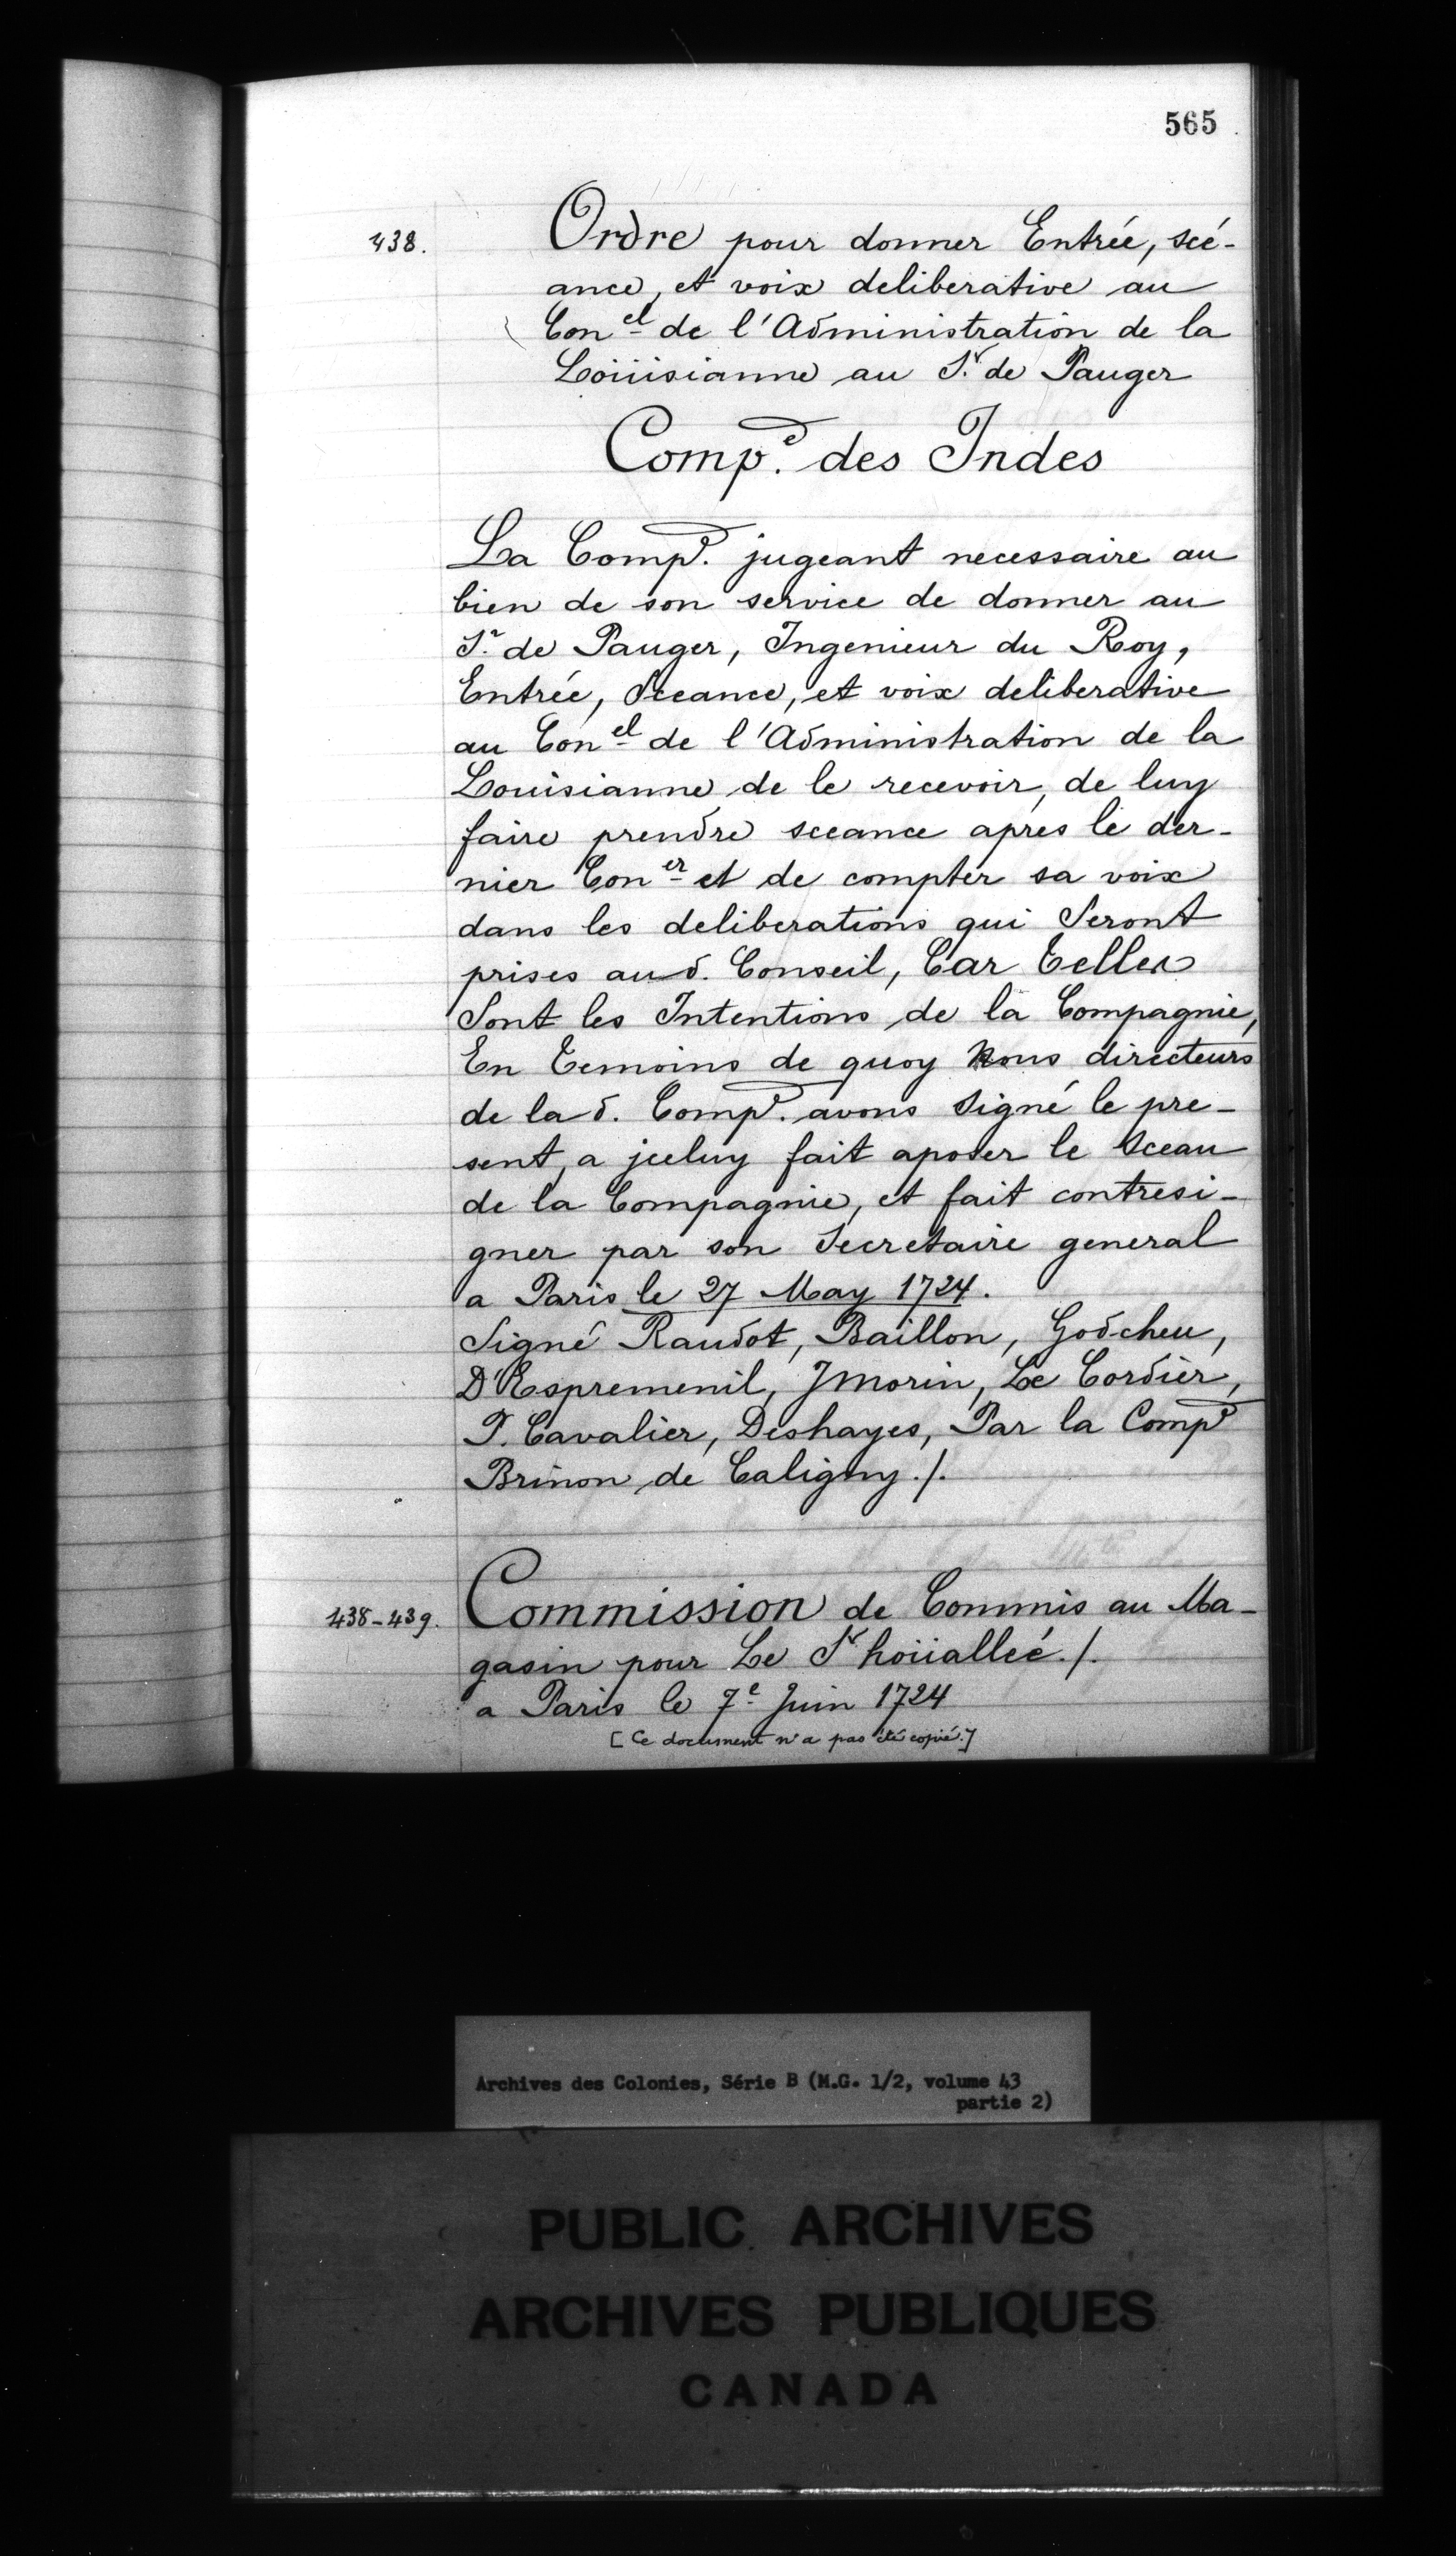 565
438.
Ordre pour donner Entrée, scé-
ance, et voix deliberative au
Con el de l'Administration de la
Loüisianne au Sr. de Pauger
Comp.e des Indes
La Compe. jugeant necessaire au
bien de son service de donner au
Sr. de Pauger, Ingenieur du Roy,
Entrée, Sceance, et voix deliberative
au Con el de l'Administration de la
Louisianne de le recevoir, de luy
faire prendre sceance apres le der-
nier Con er et de compter sa voix
dans les deliberations qui Seront
prises aud. Conseil, Car Telles
Sont les Intentions de la Compagnie,
En Temoins de quoy Nous directeurs
de lad. Compe. avons Signé le pre-
sent, a jceluy fait aposer le Sceau
de la Compagnie, et fait contresi-
gner par son Secretaire general
a Paris le 27 May 1724.
Signé Raudot, Baillon, Godcheu,
D'Espremenil, JMorin, Le Cordier,
P. Cavalier, Deshayes, Par la Compe
Brinon de Caligny ./.
438-439.
Commission de Commis au Ma-
gasin pour Le Sr hoüalleé ./.
a Paris le 7e Juin 1724
[Ce document n'a pas été copié.]
Archives des Colonies, Série B (M.G. 1/2, volume 43
partie 2)
PUBLIC ARCHIVES
ARCHIVES PUBLIQUES
CANADA